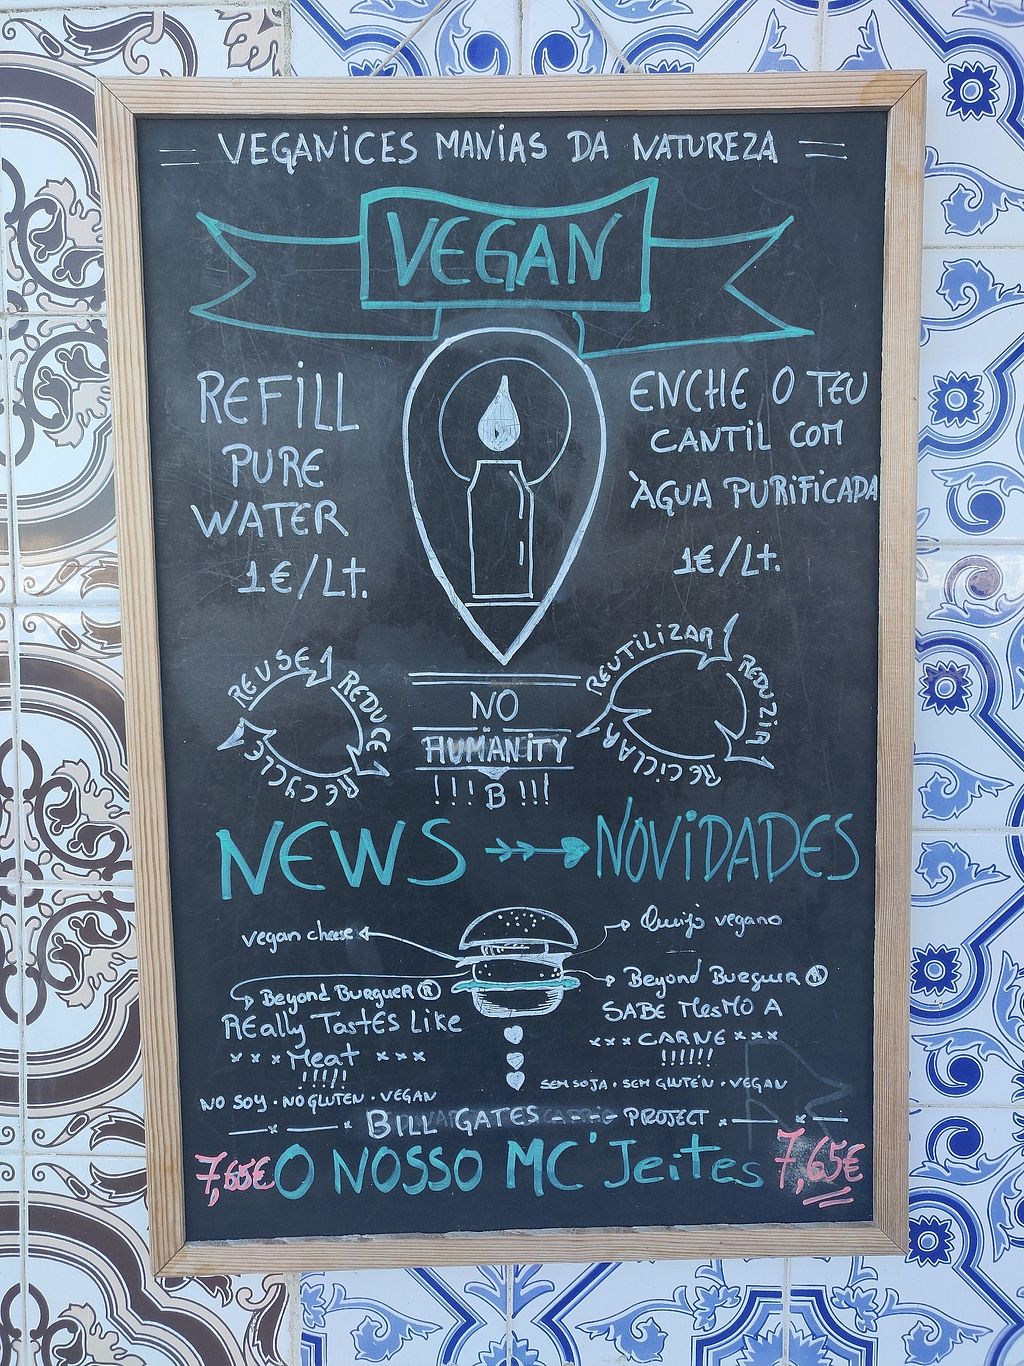 VEGANiCES MANiAS DA NATUREZA
VEGAN
REFiLL
PURE
WATER
1€/Lt.
ENCHE O TEU
CANTiL COM
ÀGUA PURiFiCADA
1€/Lt.
REUSE
REDUCE
RECYCLE
REUTiLiZAR
REDUZiR
RECiCLAR
NO
HUMANiTY
!!! B !!!
NEWS
NOViDADES
vegan cheese
Queijo vegano
Beyond BurguER ®
REally TastEs Like
x x x Meat x x x
!!!!!
NO SOY · NO GLUTEN · VEGAN
Beyond Burguer ®
SABE MesMO A
x x x CARNE x x x
!!!!!!
SEM SOJA · SEM GLUTEN · VEGAN
BiLL GATES PROJECT
7,65€ O NOSSO MC'Jeites 7,65€